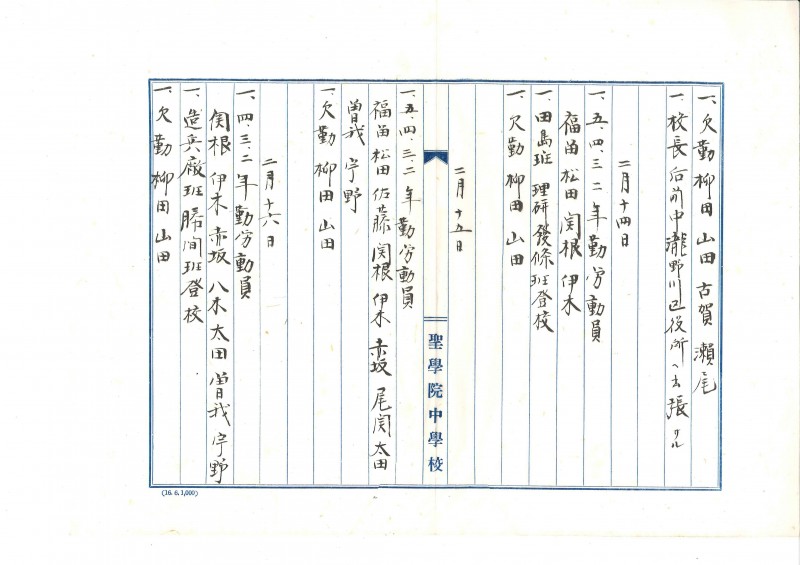 一、欠勤 柳田 山田 古賀 瀬尾
一、校長 后前中瀧野川区役所ヘ出張サル
二月十四日
一、五、四、三、二年勤労動員
福留 松田 関根 伊木
一、田島班 理研發條班登校
一、欠勤 柳田 山田
二月十五日
聖學院中學校
一、五、四、三、二年勤労動員
福留 松田 佐藤 関根 伊木 赤坂 尾関 太田
曽我 宇野
一、欠勤 柳田 山田
二月十六日
一、四、三、二年勤労動員
関根 伊木 赤坂 八木 太田 曽我 宇野
一、造兵廠班 勝間班登校
一、欠勤 柳田 山田
(16. 6. 1,000)